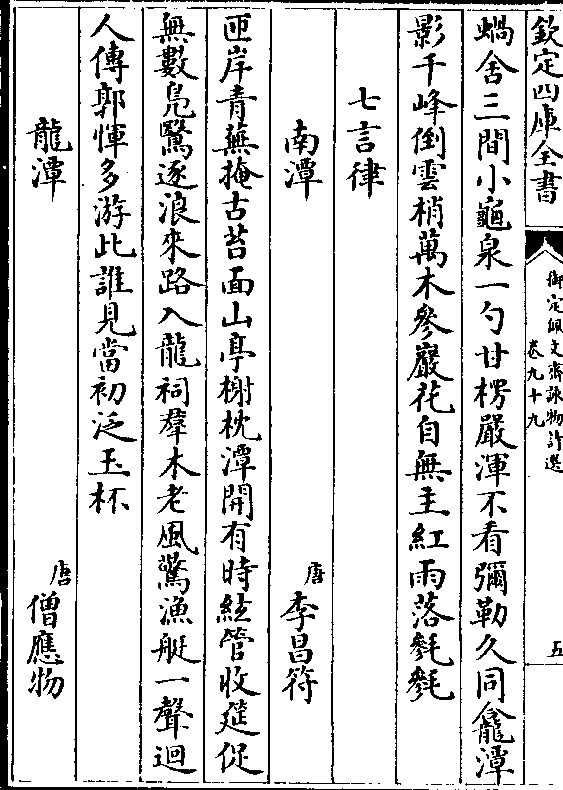 欽定四庫全書
御定佩文齋詠物詩選
卷九十九
五
蝸舍三間小龜泉一勺甘楞嚴渾不看彌勒久同龕潭
影千峰倒雲梢萬木參巖花自無主紅雨落毿毿
七言律
南潭 唐 李昌符
匝岸青蕪掩古苔面山亭榭枕潭開有時絃管收筵促
無數鳧鷖逐浪來路入龍祠羣木老風驚漁艇一聲迴
人傳郭惲多游此誰見當初泛玉杯
龍潭 唐 僧應物